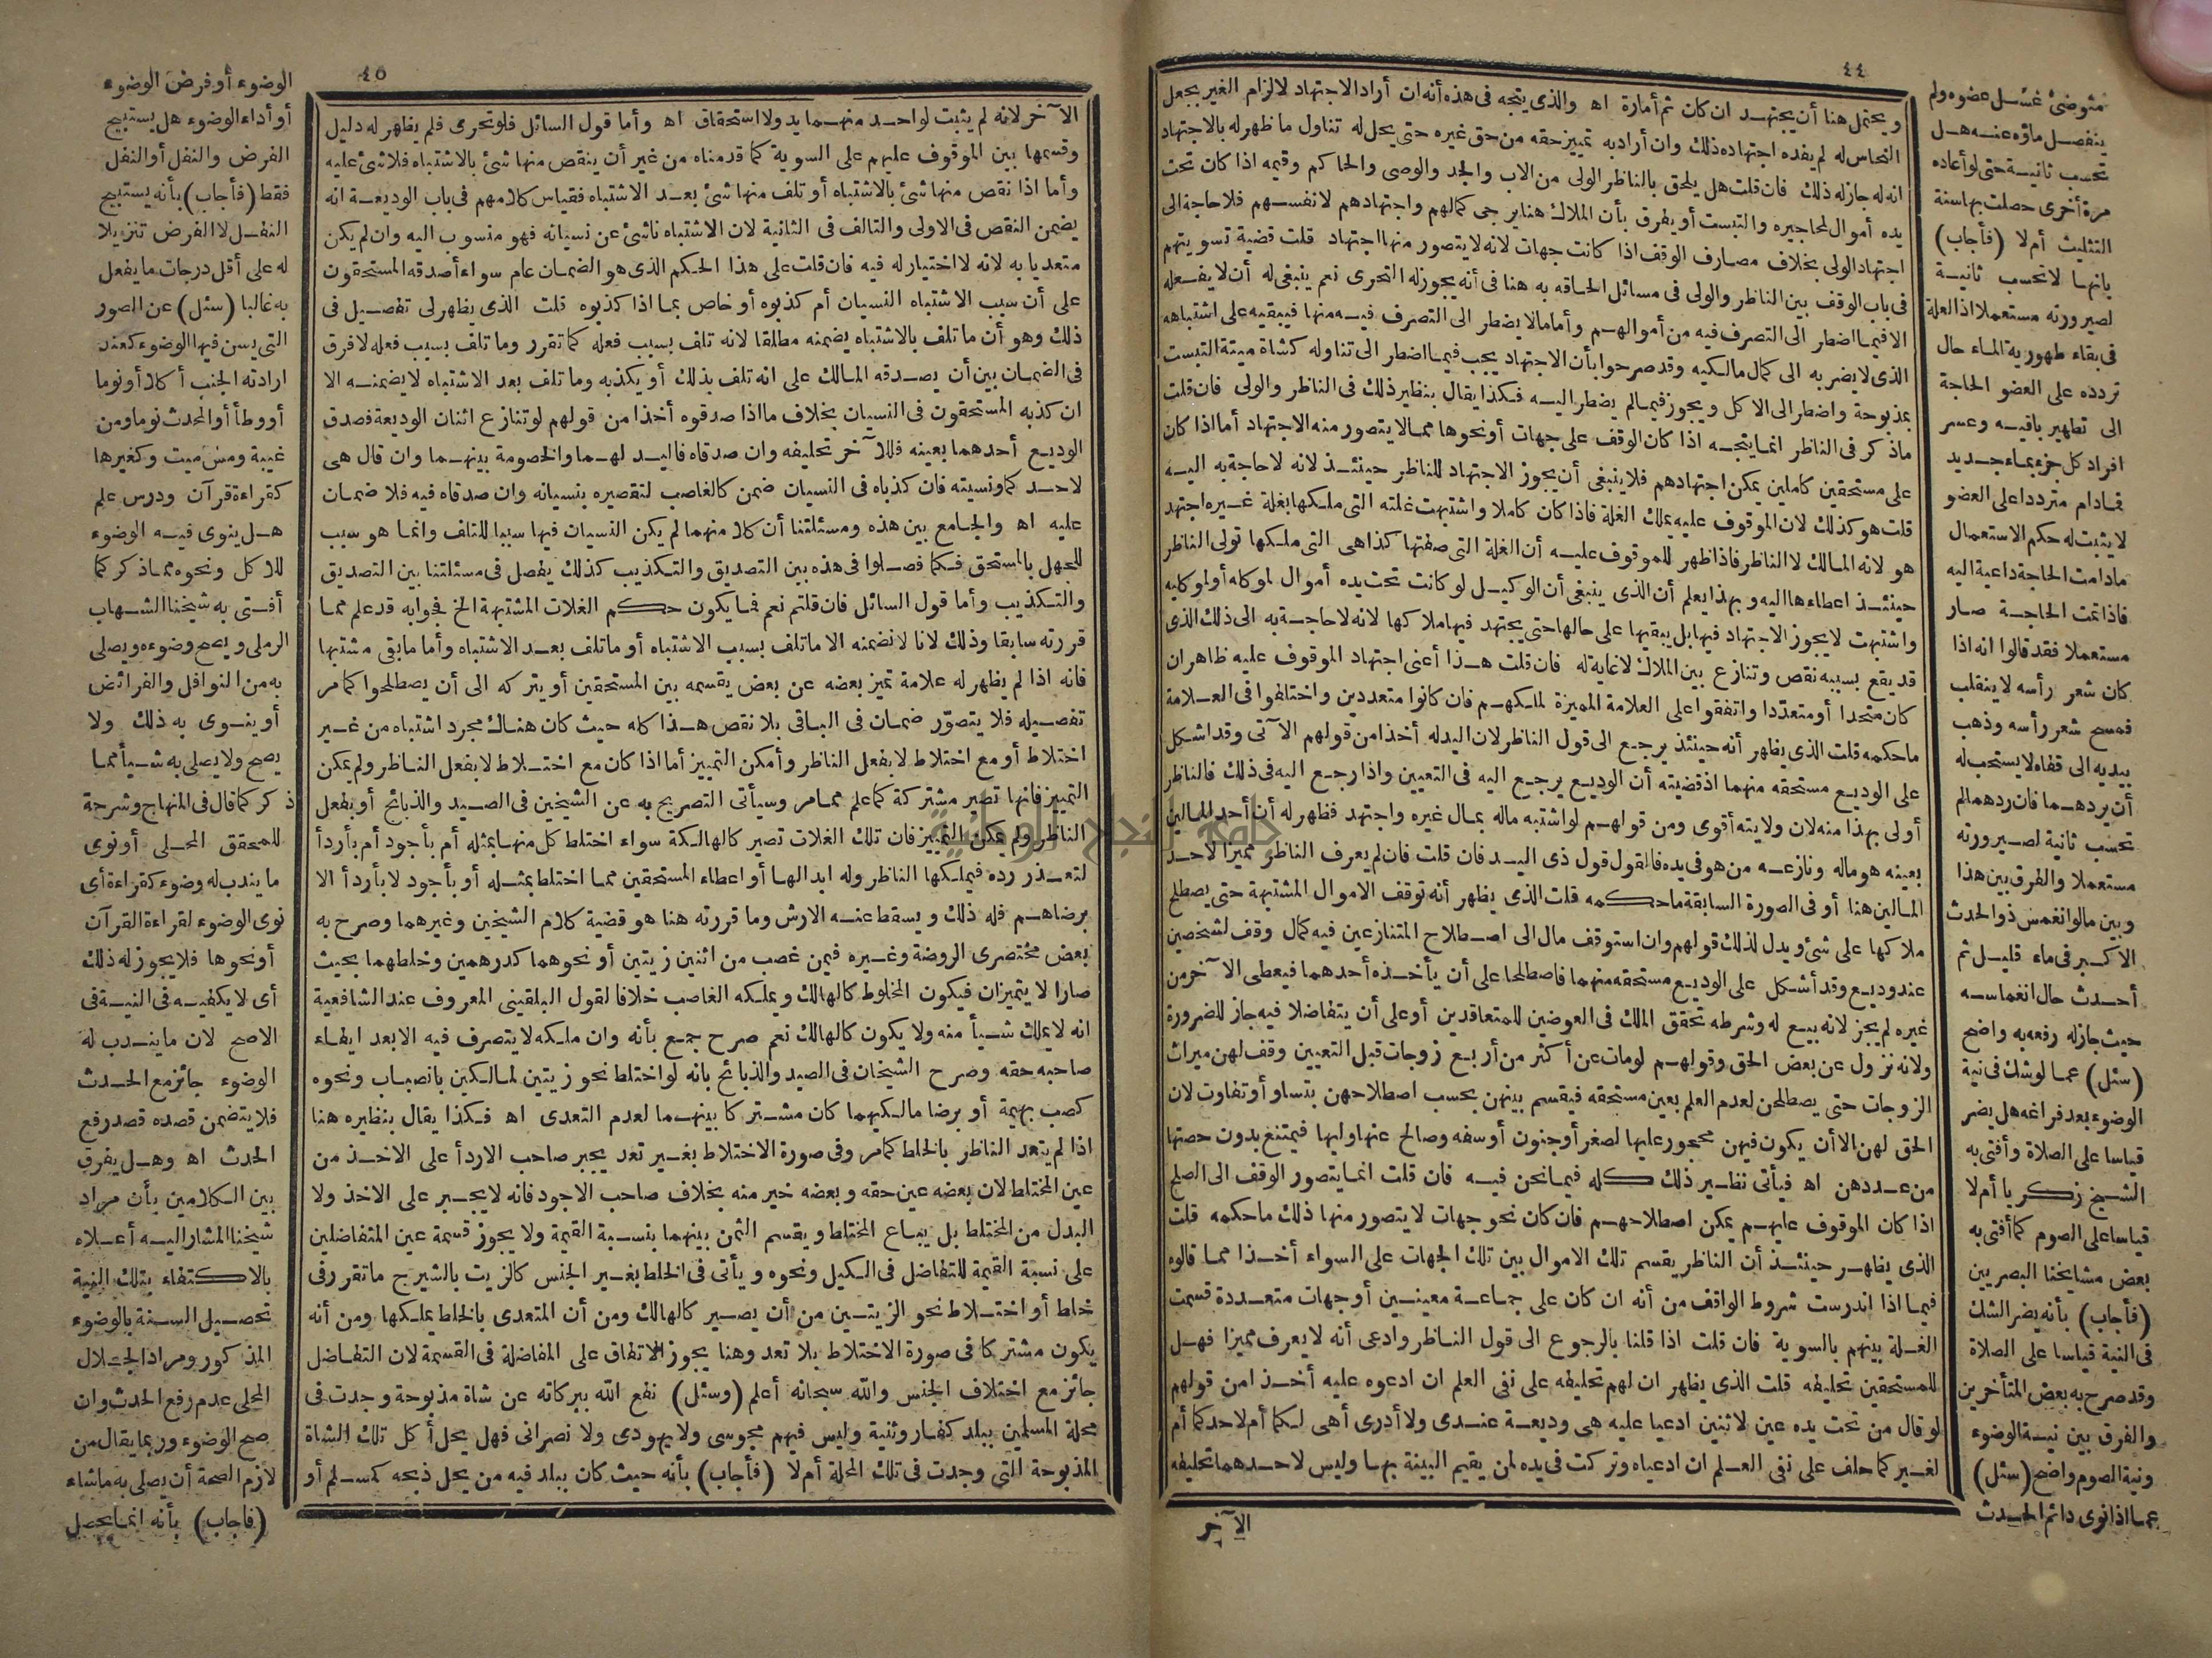 ٤٤
ويحتمل هنا أن يجتهد ان كان ثم أمارة اه والذى يتجه فى هذه أنه ان أراد الاجتهاد لالزام الغير بجعل
النحاس له لم يفده اجتهاده ذلك وان أراد به تمييز حقه من حق غيره حتى يحل له تناول ما ظهر له بالاجتهاد
انه له جاز له ذلك فان قلت هل يلحق بالناظر الولى من الاب والجد والوصى والحاكم وقيمه اذا كان تحت
يده أموال لمحاجيره والتبست أو يفرق بأن الملاك هنا يرجى كمالهم واجتهادهم لانفسهم فلا حاجة الى
اجتهاد الولى بخلاف مصارف الوقف اذا كانت جهات لانه لا يتصور منها اجتهاد قلت قضية تسويتهم
فى باب الوقف بين الناظر والولى فى مسائل الحاقه به هنا فى أنه يجوز له التحرى نعم ينبغى له أن لا يفعله
الا فيما اضطر الى التصرف فيه من أموالهم وأما ما لا يضطر الى التصرف فيه منها فيبقيه على اشتباهه
الذى لا يضر به الى كمال مالكيه وقد صرحوا بأن الاجتهاد يجب فيما اضطر الى تناوله كشاة ميتة التبست
بمذبوحة واضطر الى الاكل ويجوز فيما لم يضطر اليه فكذا يقال بنظير ذلك فى الناظر والولى فان قلت
ماذكر فى الناظر انما يتجه اذا كان الوقف على جهات أو نحوها مما لا يتصور منه الاجتهاد أما اذا كان
على مستحقين كاملين يمكن اجتهادهم فلا ينبغى أن يجوز الاجتهاد للناظر حينئذ لانه لا حاجة به اليه
قلت هو كذلك لان الموقوف عليه يملك الغلة فاذا كان كاملا واشتبهت غلته التى ملكها بغلة غيره اجتهد
هو لانه المالك لا الناظر فاذا ظهر للموقوف عليه أن الغلة التى صفتها كذا هى التى ملكها تولى الناظر
حينئذ اعطاءها اليه وبهذا يعلم أن الذى ينبغى أن الوكيل لو كانت تحت يده أموال لموكله أو لموكليه
واشتبهت لا يجوز الاجتهاد فيها بل يبقيها على حالها حتى يجتهد فيها ملاكها لانه لا حاجة به الى ذلك الذى
قد يقع بسببه نقص وتنازع بين الملاك لا غاية له فان قلت هذا أعنى اجتهاد الموقوف عليه ظاهر ان
كان متحدا أو متعددا واتفقوا على العلامة المميزة لملكهم فان كانوا متعددين واختلفوا فى العلامة
ما حكمه قلت الذى يظهر أنه حينئذ يرجع الى قول الناظر لان اليد له أخذا من قولهم الآتى وقد اشكل
على الوديع مستحقه منهما اذ قضيته أن الوديع يرجع اليه فى التعيين واذا رجع اليه فى ذلك فالناظر
أولى بهذا منه لان ولايته أقوى ومن قولهم لو اشتبه ماله بمال غيره واجتهد فظهر له أن أحد المالين
بعينه هو ماله ونازعه من هو فى يده فالقول قول ذى اليد فان قلت فان لم يعرف الناظر مميزا لاحد
المالين هنا أو فى الصورة السابقة ما حكمه قلت الذى يظهر أنه توقف الاموال المشتبهة حتى يصطلح
ملاكها على شئ ويدل لذلك قولهم وان استوقف مال الى اصطلاح المتنازعين فيه كمال وقف لشخصين
عند وديع وقد أشكل على الوديع مستحقه منهما فاصطلحا على أن يأخذه أحدهما فيعطى الآخر من
غيره لم يجز لانه بيع له وشرطه تحقق الملك فى العوضين للمتعاقدين أو على أن يتفاضلا فيه جاز للضرورة
ولانه نزول عن بعض الحق وقولهم لو مات عن أكثر من أربع زوجات قبل التعيين وقف لهن ميراث
الزوجات حتى يصطلحن لعدم العلم بعين مستحقه فيقسم بينهن بحسب اصطلاحهن بتساو أو تفاوت لان
الحق لهن الا أن يكون فيهن محجور عليها لصغر أو جنون أو سفه وصالح عنها وليها فيمتنع بدون حصتها
من عددهن اه فيأتى نظير ذلك كله فيما نحن فيه فان قلت انما يتصور الوقف الى الصلح
اذا كان الموقوف عليهم يمكن اصطلاحهم فان كان نحو جهات لا يتصور منها ذلك ما حكمه قلت
الذى يظهر حينئذ أن الناظر يقسم تلك الاموال بين تلك الجهات على السواء أخذا مما قالوه
فيما اذا اندرست شروط الواقف من أنه ان كان على جماعة معينين أو جهات متعددة قسمت
الغلة بينهم بالسوية فان قلت اذا قلنا بالرجوع الى قول الناظر وادعى أنه لا يعرف مميزا فهل
للمستحقين تحليفه قلت الذى يظهر ان لهم تحليفه على نفى العلم ان ادعوه عليه أخذا من قولهم
لو قال من تحت يده عين لاثنين ادعيا عليه هى وديعة عندى ولا أدرى أهى لكما أم لاحدكما أم
لغيركما حلف على نفى العلم ان ادعياه وتركت فى يده لمن يقيم البينة بها وليس لاحدهما تحليفه
الآخر
متوضئ غسل عضوه ولم
ينفصل ماؤه عنه هل
تحسب ثانية حتى لو أعاده
مرة أخرى حصلت بها سنة
التثليث أم لا (فأجاب)
بانها لا تحسب ثانية
لصيرورته مستعملا اذ العلة
فى بقاء طهورية الماء حال
تردده على العضو الحاجة
الى تطهير باقيه وعسر
افراد كل جزء بماء جديد
فمادام مترددا على العضو
لا يثبت له حكم الاستعمال
مادامت الحاجة داعية اليه
فاذا تمت الحاجة صار
مستعملا فقد قالوا انه اذا
كان شعر رأسه لا ينقلب
فمسح شعر رأسه وذهب
بيديه الى قفاه لا يستحب له
أن يردهما فان ردهما لم
تحسب ثانية لصيرورته
مستعملا والفرق بين هذا
وبين ما لو انغمس ذو الحدث
الاكبر فى ماء قليل ثم
أحدث حال انغماسه
حيث جاز له رفعه به واضح
(سئل) عما لو شك فى نية
الوضوء بعد فراغه هل يضر
قياسا على الصلاة وأفتى به
الشيخ زكريا أم لا
قياسا على الصوم كما أفتى به
بعض مشايخنا البصريين
(فأجاب) بأنه يضر الشك
فى النية قياسا على الصلاة
وقد صرح به بعض المتأخرين
والفرق بين نية الوضوء
ونية الصوم واضح (سئل)
عما اذا نوى دائم الحدث
٤٥
الآخر لانه لم يثبت لواحد منهما يد ولا استحقاق اه وأما قول السائل فلو تحرى فلم يظهر له دليل
وقسمها بين الموقوف عليهم على السوية كما قدمناه من غير أن ينقص منها شئ بالاشتباه فلا شئ عليه
وأما اذا نقص منها شئ بالاشتباه أو تلف منها شئ بعد الاشتباه فقياس كلامهم فى باب الوديعة انه
يضمن النقص فى الاولى والتالف فى الثانية لان الاشتباه ناشئ عن نسيانه فهو منسوب اليه وان لم يكن
متعديا به لانه لا اختيار له فيه فان قلت على هذا الحكم الذى هو الضمان عام سواء أصدقه المستحقون
على أن سبب الاشتباه النسيان أم كذبوه أو خاص بما اذا كذبوه قلت الذى يظهر لى تفصيل فى
ذلك وهو أن ما تلف بالاشتباه يضمنه مطلقا لانه تلف بسبب فعله كما تقرر وما تلف بسبب فعله لا فرق
فى الضمان بين أن يصدقه المالك على انه تلف بذلك أو يكذبه وما تلف بعد الاشتباه لا يضمنه الا
ان كذبه المستحقون فى النسيان بخلاف ما اذا صدقوه أخذا من قولهم لو تنازع اثنان الوديعة فصدق
الوديع أحدهما بعينه فللآخر تحليفه وان صدقاه فاليد لهما والخصومة بينهما وان قال هى
لاحدكما ونسيته فان كذباه فى النسيان ضمن كالغاصب لتقصيره بنسيانه وان صدقاه فيه فلا ضمان
عليه اه والجامع بين هذه ومسئلتنا أن كلا منهما لم يكن النسيان فيها سببا للتلف وانما هو سبب
للجهل بالمستحق فكما فصلوا فى هذه بين التصديق والتكذيب كذلك يفصل فى مسئلتنا بين التصديق
والتكذيب وأما قول السائل فان قلتم نعم فما يكون حكم الغلات المشتبهة الخ فجوابه قد علم مما
قررته سابقا وذلك لانا لا نضمنه الا ما تلف بسبب الاشتباه أو ما تلف بعد الاشتباه وأما ما بقى مشتبها
فانه اذا لم يظهر له علامة تميز بعضه عن بعض يقسمه بين المستحقين أو يتركه الى أن يصطلحوا كما مر
تفصيله فلا يتصور ضمان فى الباقى بلا نقص هذا كله حيث كان هناك مجرد اشتباه من غير
اختلاط أو مع اختلاط لا بفعل الناظر وأمكن التمييز أما اذا كان مع اختلاط لا بفعل الناظر ولم يمكن
التمييز فانها تصير مشتركة كما علم مما مر وسيأتى التصريح به عن الشيخين فى الصيد والذبائح أو بفعل
الناظر ولم يمكن التمييز فان تلك الغلات تصير كالهالكة سواء اختلط كل منها بمثله أم بأجود أم بأردأ
لتعذر رده فيملكها الناظر وله ابدالها أو اعطاء المستحقين مما اختلط بمثله أو بأجود لا بأردأ الا
برضاهم فله ذلك ويسقط عنه الارش وما قررته هنا هو قضية كلام الشيخين وغيرهما وصرح به
بعض مختصرى الروضة وغيره فيمن غصب من اثنين زيتين أو نحوهما كدرهمين وخلطهما بحيث
صارا لا يتميزان فيكون المخلوط كالهالك ويملكه الغاصب خلافا لقول البلقينى المعروف عند الشافعية
انه لا يملك شيأ منه ولا يكون كالهالك نعم صرح جمع بأنه وان ملكه لا يتصرف فيه الا بعد ايفاء
صاحبه حقه وصرح الشيخان فى الصيد والذبائح بانه لو اختلط نحو زيتين لمالكين بانصباب ونحوه
كصب بهيمة أو برضا مالكيهما كان مشتركا بينهما لعدم التعدى اه فكذا يقال بنظيره هنا
اذا لم يتعد الناظر بالخلط كما مر وفى صورة الاختلاط بغير تعد يجبر صاحب الاردأ على الاخذ من
عين المختلط لان بعضه عين حقه وبعضه خير منه بخلاف صاحب الاجود فانه لا يجبر على الاخذ ولا
البدل من المختلط بل يباع المختلط ويقسم الثمن بينهما بنسبة القيمة ولا يجوز قسمة عين المتفاضلين
على نسبة القيمة للتفاضل فى الكيل ونحوه ويأتى فى الخلط بغير الجنس كالزيت بالشيرج ما تقرر فى
خلط أو اختلاط نحو الزيتين من أن يصير كالهالك ومن أن المتعدى بالخلط يملكها ومن أنه
يكون مشتركا فى صورة الاختلاط بلا تعد وهنا يجوز الاتفاق على المفاضلة فى القسمة لان التفاضل
جائز مع اختلاف الجنس والله سبحانه أعلم (وسئل) نفع الله ببركاته عن شاة مذبوحة وجدت فى
محلة المسلمين ببلد كفار وثنية وليس فيهم مجوسى ولا يهودى ولا نصرانى فهل يحل أكل تلك الشاة
المذبوحة التى وجدت فى تلك المحلة أم لا (فأجاب) بأنه حيث كان ببلد فيه من يحل ذبحه كمسلم أو
الوضوء أو فرض الوضوء
أو أداء الوضوء هل يستبيح
الفرض والنفل أو النفل
فقط (فأجاب) بأنه يستبيح
النفل لا الفرض تنزيلا
له على أقل درجات ما يفعل
به غالبا (سئل) عن الصور
التى يسن فيها الوضوء كعند
ارادته الجنب أكلا أو نوما
أو وطأ أو المحدث نوما ومن
غيبة ومس ميت وكغيرها
كقراءة قرآن ودرس علم
هل ينوى فيه الوضوء
للاكل ونحوه مما ذكر كما
أفتى به شيخنا الشهاب
الرملى ويصح وضوءه ويصلى
به من النوافل والفرائض
أو ينوى به ذلك ولا
يصح ولا يصلى به شيأ مما
ذكر كما قال فى المنهاج وشرحة
للمحقق المحلى أو نوى
ما يندب له وضوء كقراءة أى
نوى الوضوء لقراءة القرآن
أو نحوها فلا يجوز له ذلك
أى لا يكفيه فى النية فى
الاصح لان ما يندب له
الوضوء جائز مع الحدث
فلا يتضمن قصده قصد رفع
الحدث اه وهل يفرق
بين الكلامين بأن مراد
شيخنا المشار اليه أعلاه
بالاكتفاء بتلك النية
تحصيل السنة بالوضوء
المذكور ومراد الجلال
المحلى عدم رفع الحدث وان
صح الوضوء وربما يقال من
لازم الصحة أن يصلى به ماشاء
(فأجاب) بأنه انما يحصل